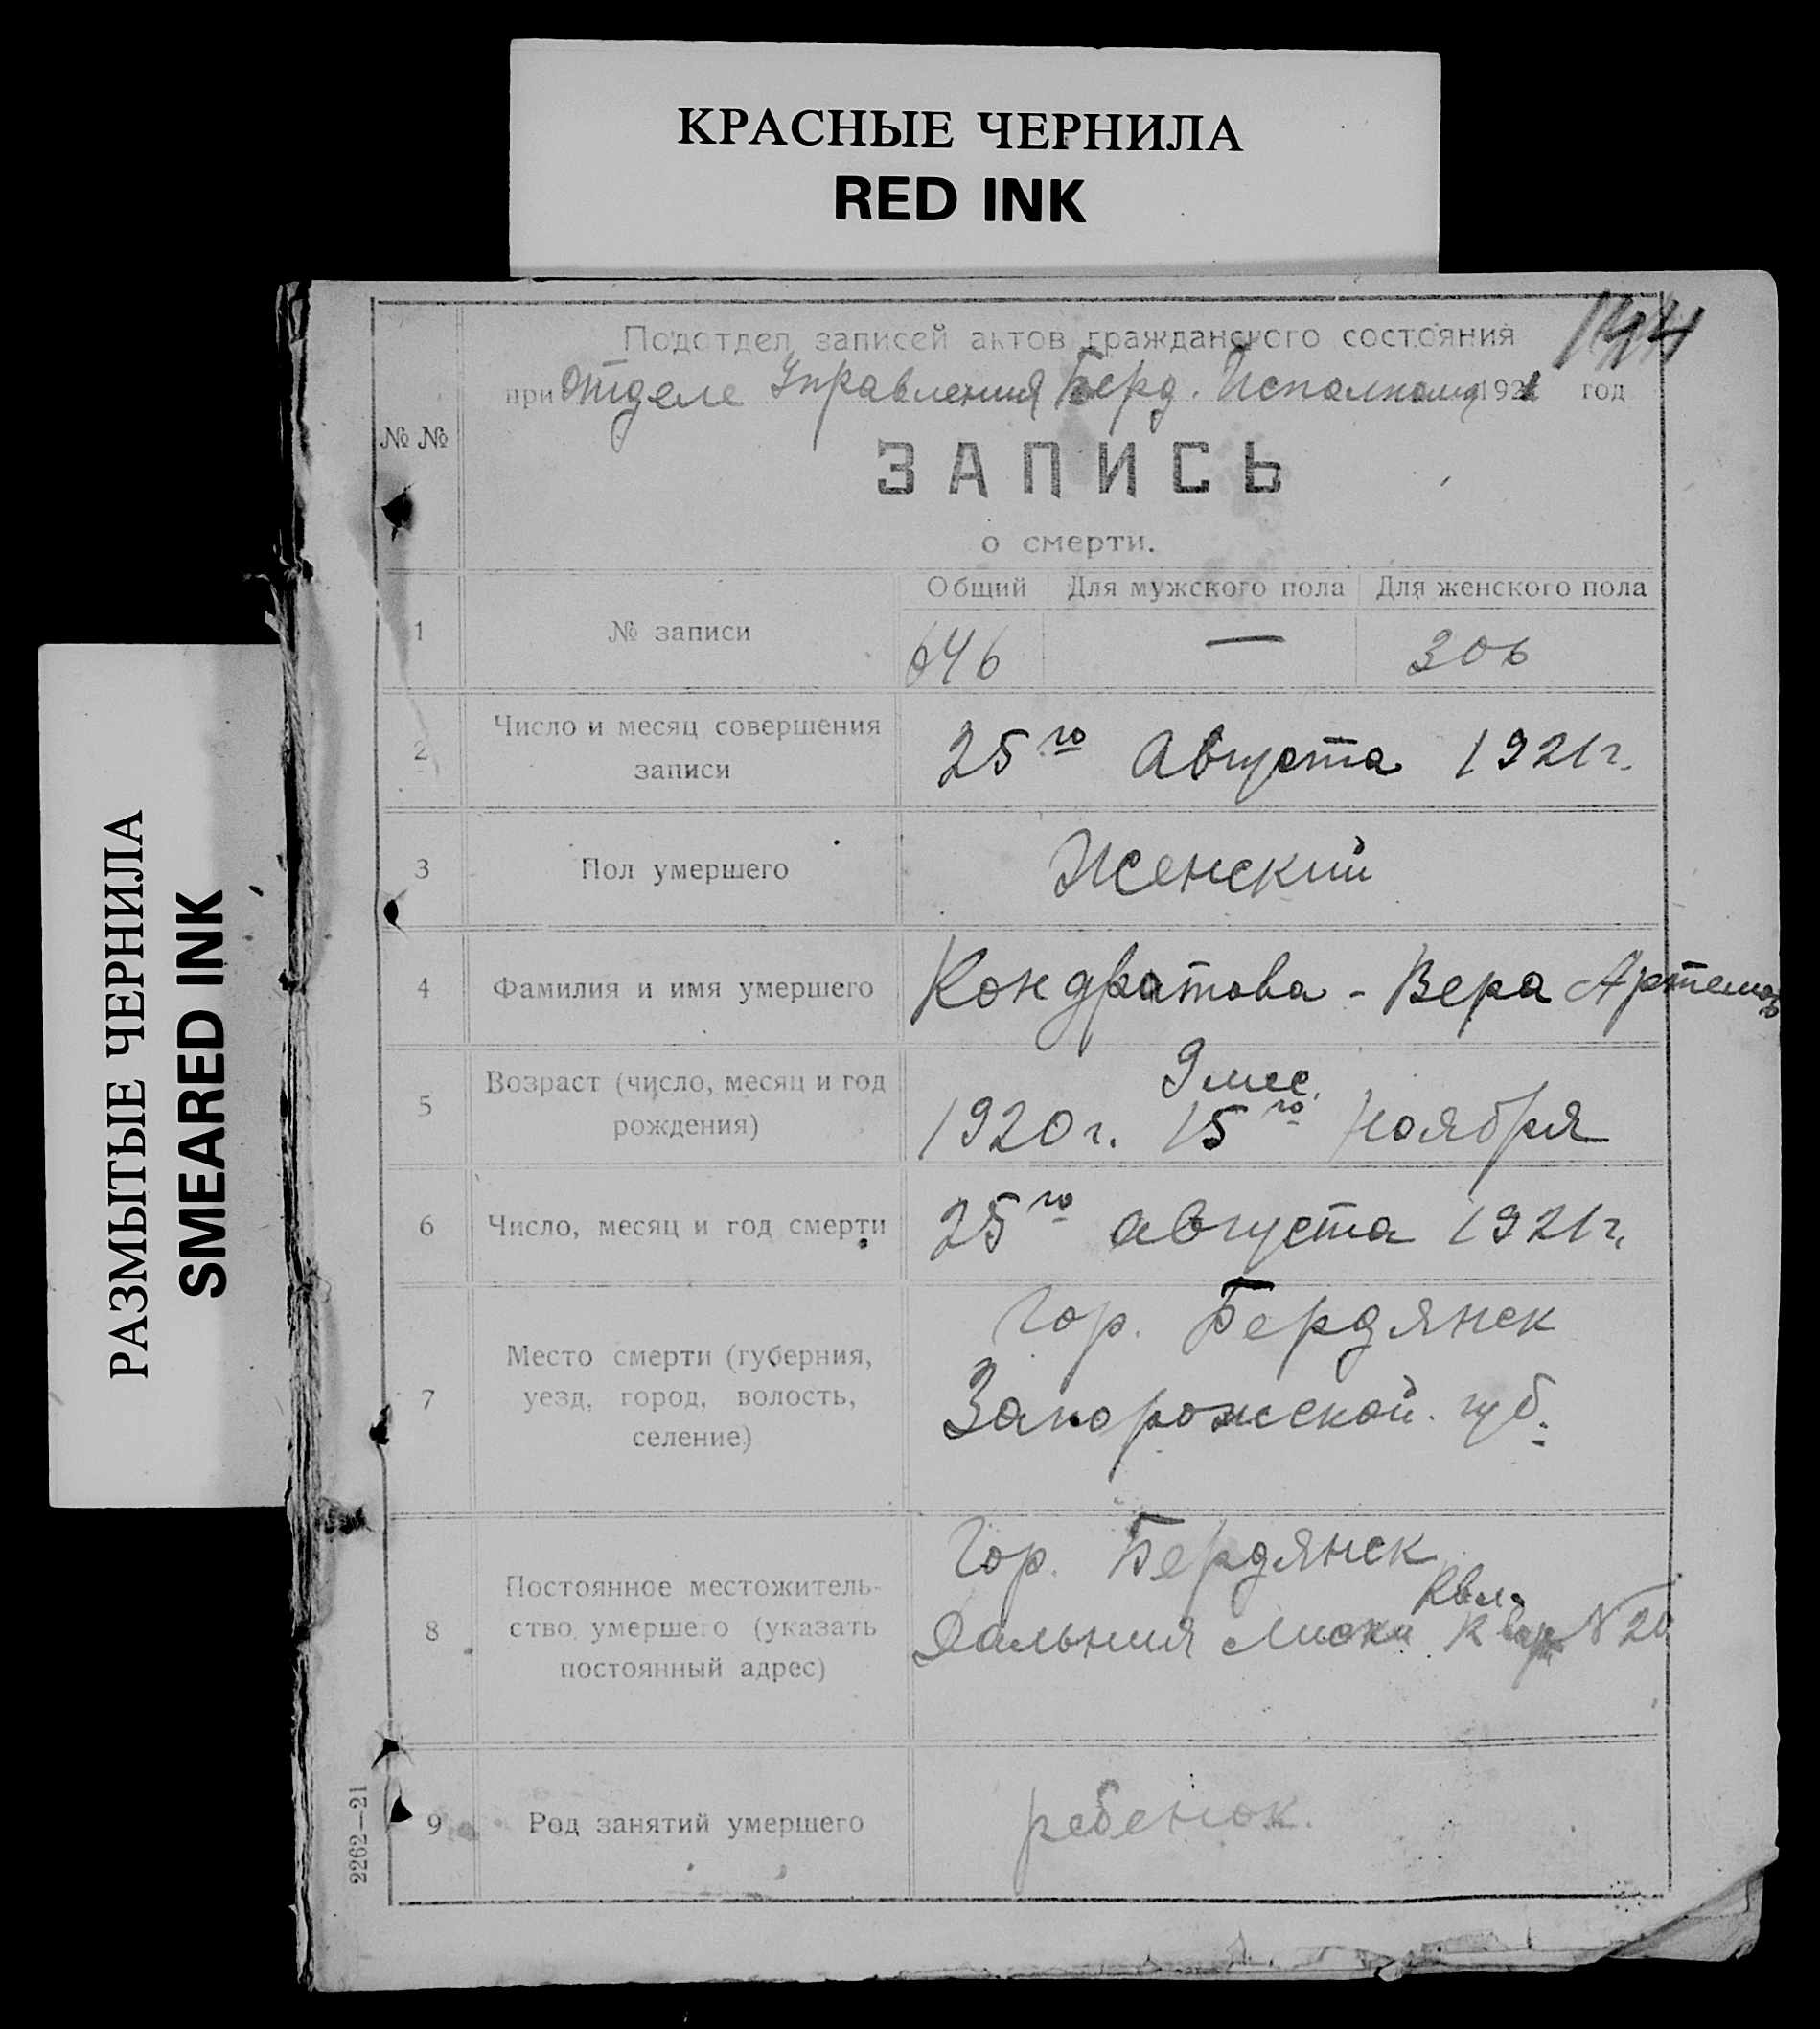 КРАСНЫЕ ЧЕРНИЛА
RED INK
РАЗМЫТЫЕ ЧЕРНИЛА
SMEARED INK
144
Подотдел записей актов гражданского состояния
при Отделе Управления Берд. Исполкома 1921 год
№ №
ЗАПИСЬ
о смерти.
Общий Для мужского пола Для женского пола
1 № записи 646 — 306
2 Число и месяц совершения
записи
25го Августа 1921 г.
3 Пол умершего Женский
4 Фамилия и имя умершего Кондратова - Вера Артемов
5 Возраст (число, месяц и год
рождения)
9 мес.
1920 г. 15го Ноября
6 Число, месяц и год смерти 25го августа 1921 г.
7 Место смерти (губерния,
уезд, город, волость,
селение)
Гор. Бердянск
Запорожской губ.
8 Постоянное местожитель-
ство умершего (указать
постоянный адрес)
Гор. Бердянск
Дальния № 20
9 Род занятий умершего ребенок.
2262—21